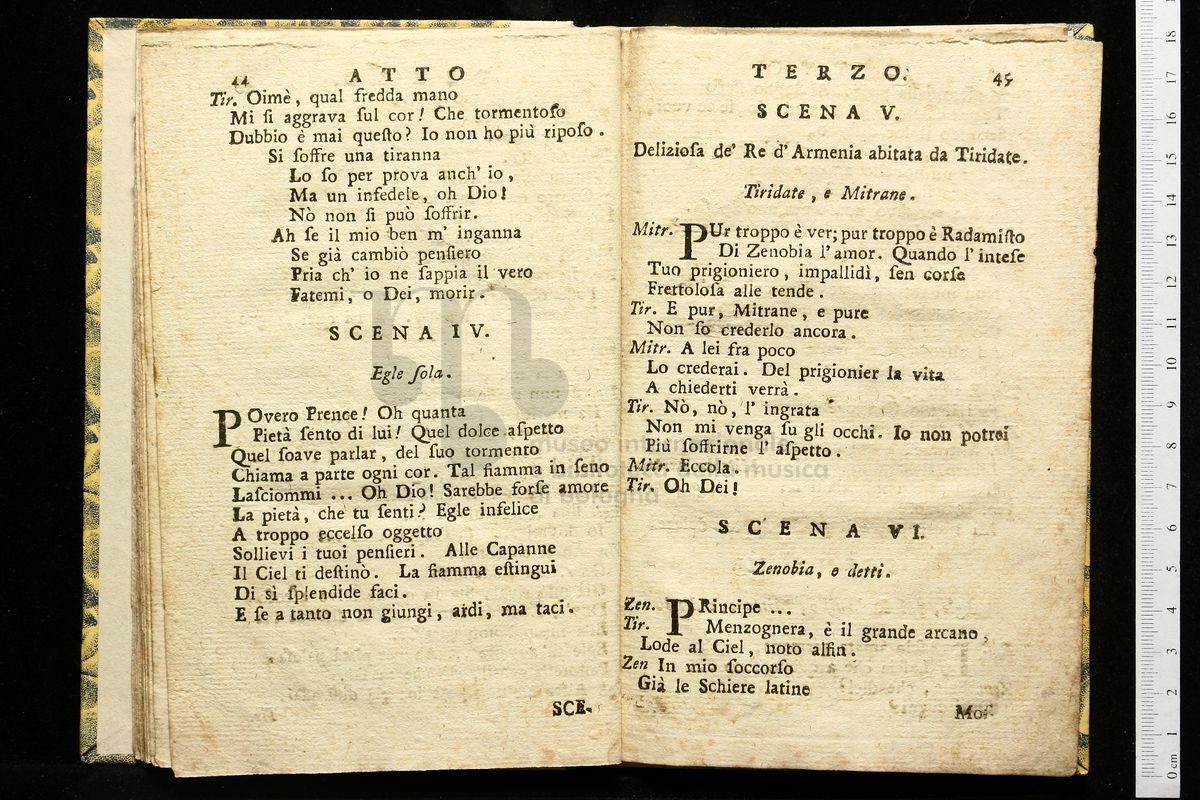 44 ATTO
Tir. Oimè, qual fredda mano
Mi ſi aggrava ſul cor! Che tormentoſo
Dubbio è mai queſto? Io non ho più ripoſo.
Si ſoffre una tiranna
Lo ſo per prova anch' io,
Ma un infedele, oh Dio!
Nò non ſi può ſoffrir.
Ah ſe il mio ben m' inganna
Se già cambiò penſiero
Pria ch' io ne ſappia il vero
Fatemi, o Dei, morir.
SCENA IV.
Egle ſola.
POvero Prence! Oh quanta
Pietà ſento di lui! Quel dolce aſpetto
Quel ſoave parlar, del ſuo tormento
Chiama a parte ogni cor. Tal fiamma in ſeno
Laſciommi ... Oh Dio! Sarebbe forſe amore
La pietà, che tu ſenti? Egle infelice
A troppo eccelſo oggetto
Sollievi i tuoi penſieri. Alle Capanne
Il Ciel ti deſtinò. La fiamma eſtingui
Di sì ſplendide faci.
E ſe a tanto non giungi, ardi, ma taci.
SCE-
TERZO. 45
SCENA V.
Delizioſa de' Re d' Armenia abitata da Tiridate.
Tiridate, e Mitrane.
Mitr. PUr troppo è ver; pur troppo è Radamiſto
Di Zenobia l' amor. Quando l' inteſe
Tuo prigioniero, impallidì, ſen corſe
Frettoloſa alle tende.
Tir. E pur, Mitrane, e pure
Non ſo crederlo ancora.
Mitr. A lei fra poco
Lo crederai. Del prigionier la vita
A chiederti verrà.
Tir. Nò, nò, l' ingrata
Non mi venga ſu gli occhi. Io non potrei
Più ſoffrirne l' aſpetto.
Mitr. Eccola.
Tir. Oh Dei!
SCENA VI.
Zenobia, e detti.
Zen. PRincipe ...
Tir. Menzognera, è il grande arcano,
Lode al Ciel, noto alfin.
Zen In mio ſoccorſo
Già le Schiere latine
Moſ-
museo internazionale
biblioteca della musica
di bologna